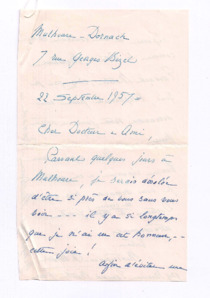 Mulhouse - Dornach
7 rue Georges Bizet
22 Septembre 1957
Cher Docteur et Ami,
Passant quelques jours à
Mulhouse, je serais désolée
d'être si près de vous sans vous
voir --- il y a si longtemps
que je n'ai eu cet honneur, --
cette joie !
Afin d'éviter une